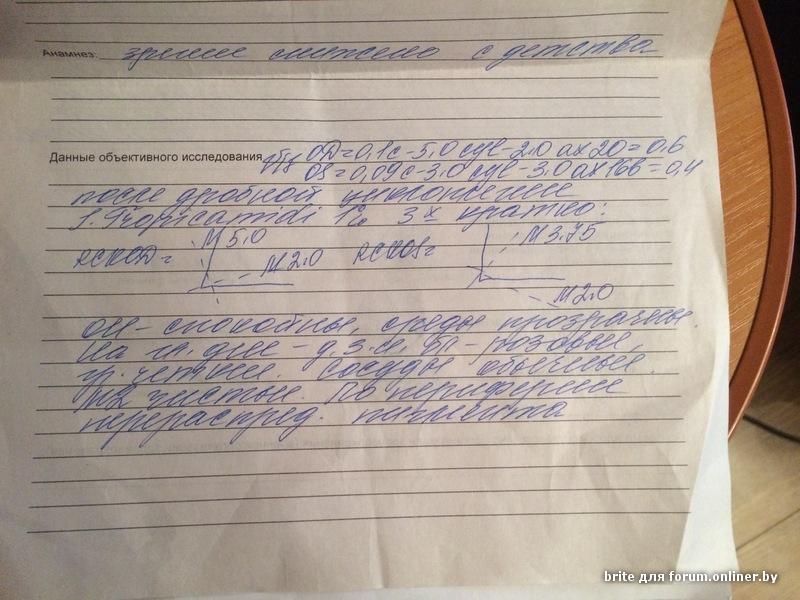 Анамнез: зрение снижено с детства
Данные объективного исследования Vis OD=0,1 c -5,0 cyl -2,0 ax 20 = 0,6
OS=0,09 c -3,0 cyl -3,0 ax 166 = 0,4
после дробной циклоплегии
S. Tropicamidi 1% 3х кратно:
M 5.0
M 2.0
M 3.75
M 2.0
ОИ - спокойны, среды прозрачны.
На гл. дне - д.з.н. бл-розовые,
гр. четкие. Сосуды обычные.
чистые. По периферии
перераспред. пигмента
brite для forum.onliner.by